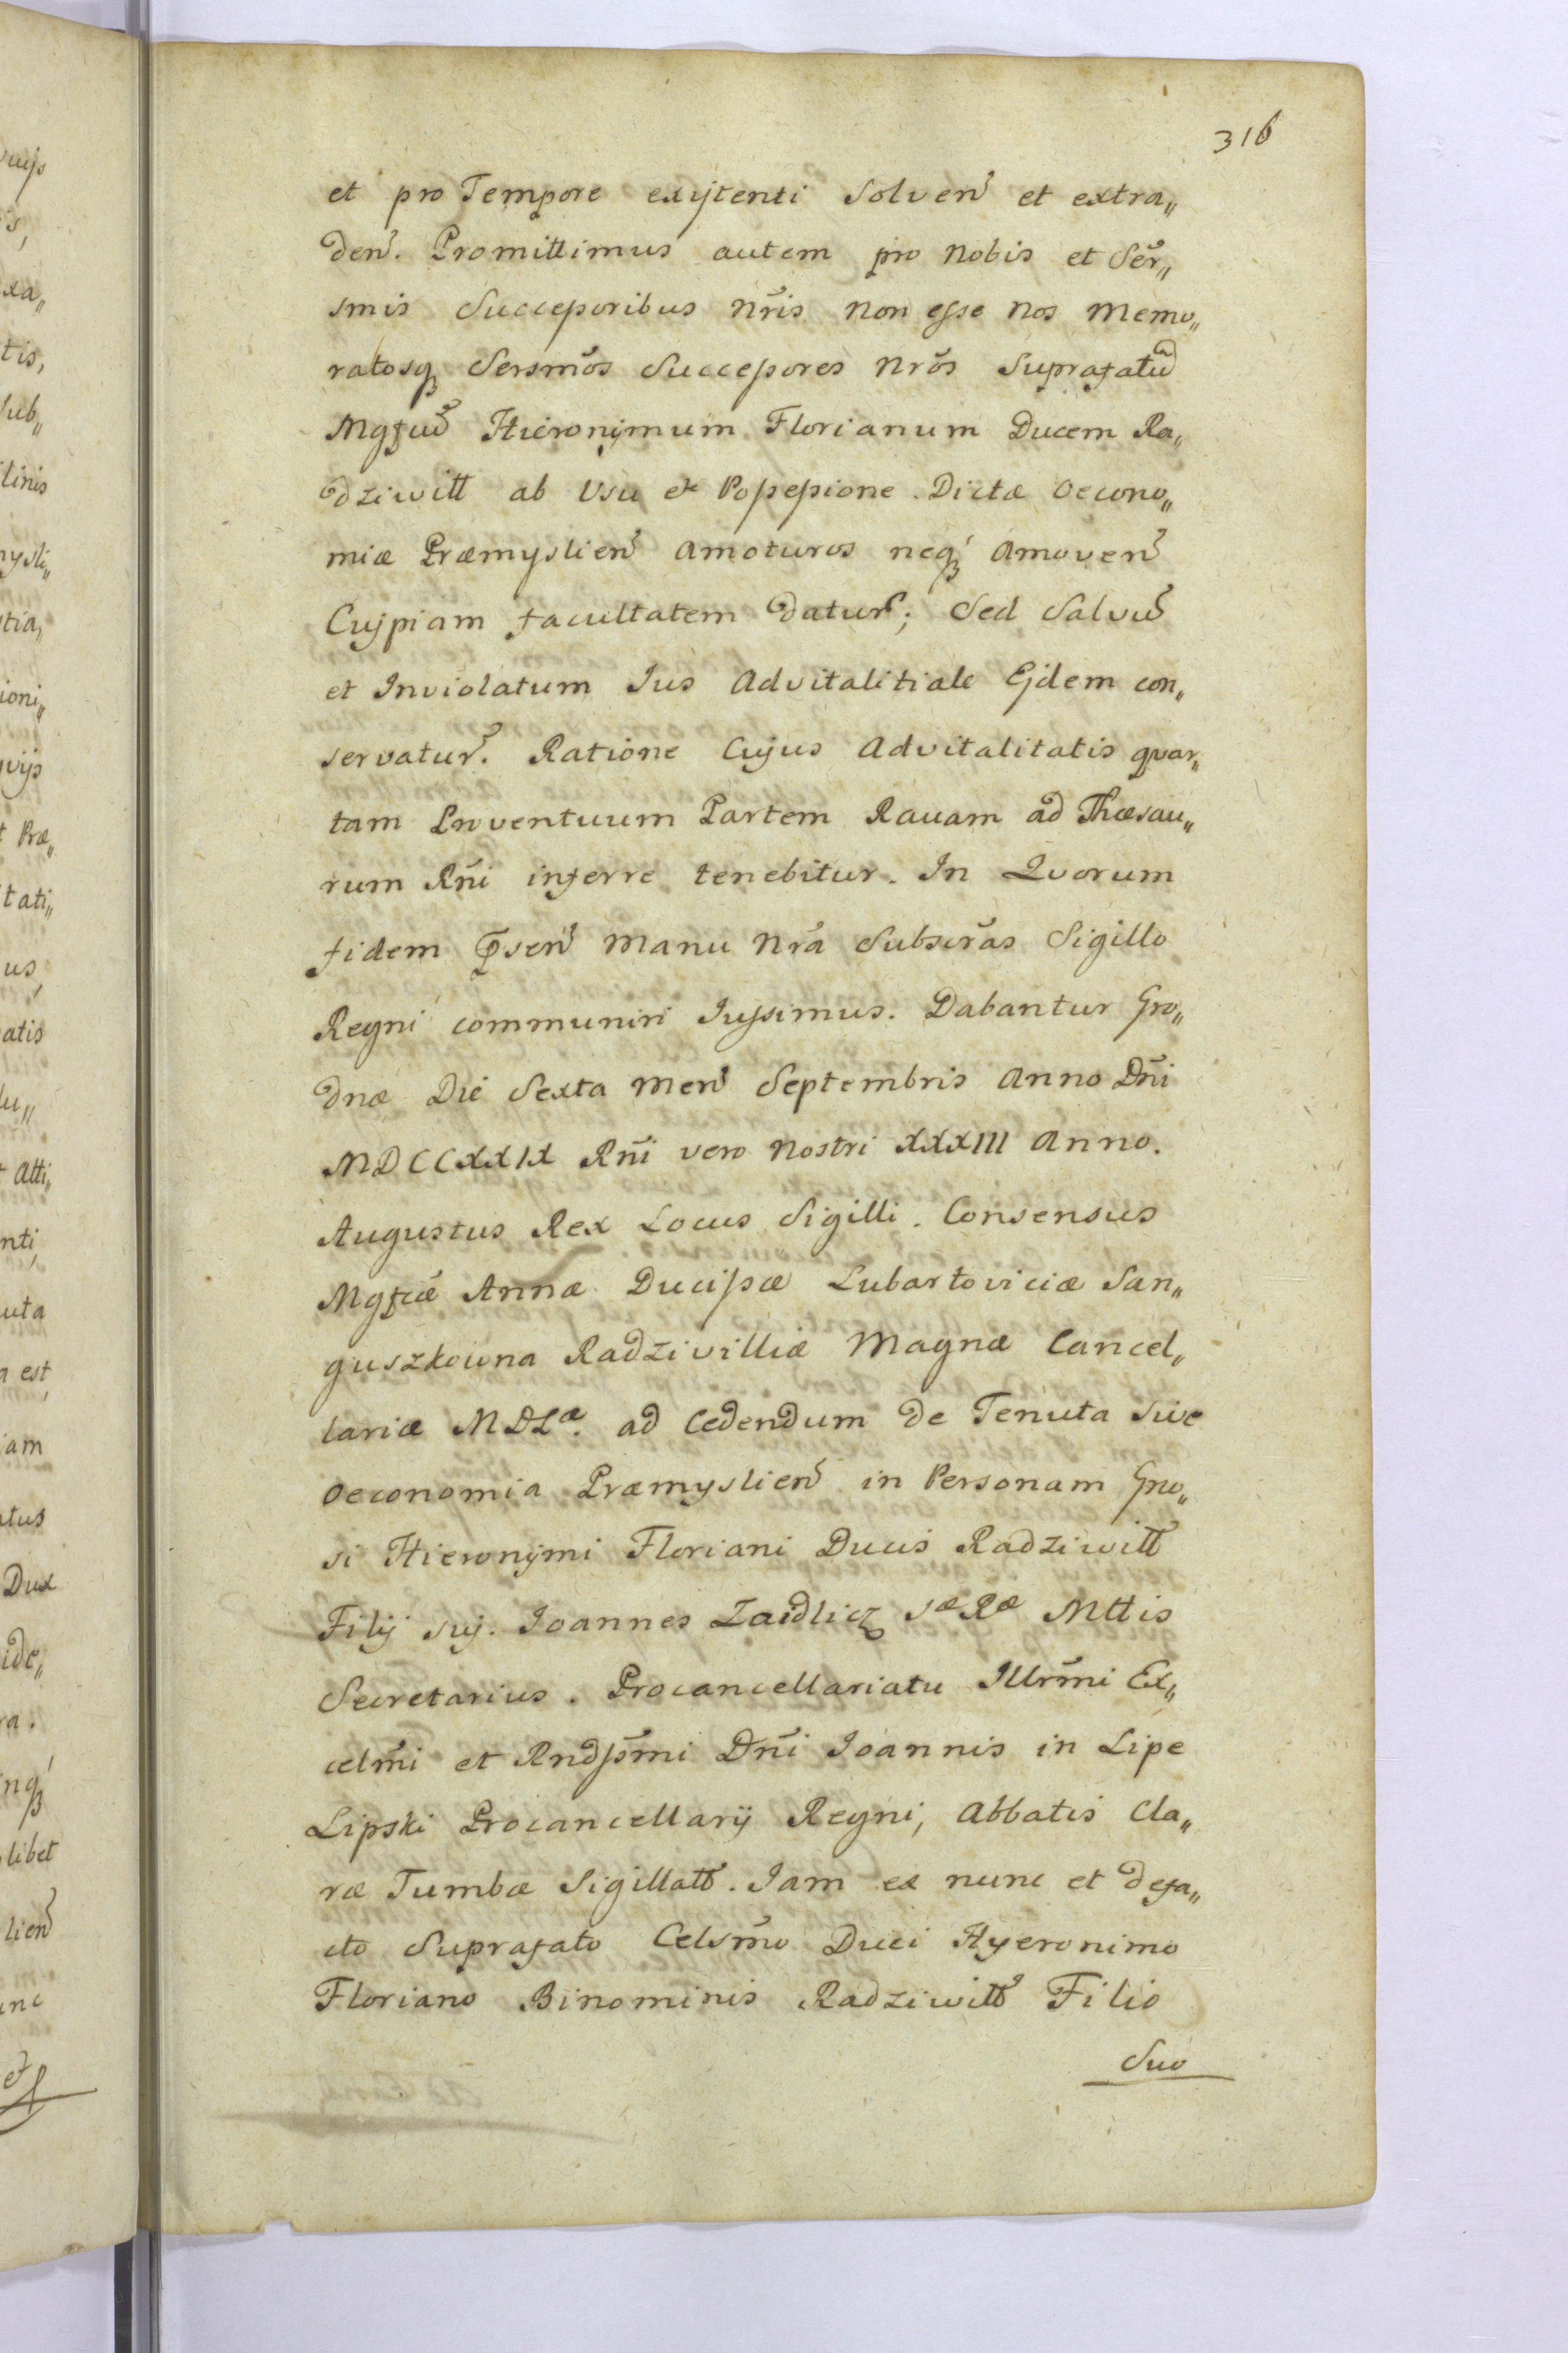 316
et pro Tempore existenti Solven̄ et extra„
den̄. Promittimus autem pro Nobis et Sēr„
smis Successoribus Nr̃is Non esse Nos Memo„
ratosq̃ Sersmõs Successores Nrõs Suprafatũ
Mgfcũ Hieronymum Florianum Ducem Ra„
dziwill ab Usu et Possessione Dictæ Oecono„
miæ Præmyslien̄ Amoturos neq̃ Amoven̄
Cuipiam facultatem datur̃; Sed Salvũ
et Inviolatum Ius Advitalitiale Eidem con„
servatur̃. Ratione Cujus Advitalitatis quar„
tam Proventuum Partem Ravam ad Thæsau„
rum Rñi inferre tenebitur. In Quorum
fidem P̃sen̄ Manu Nr̃a Subscr̃as Sigillo
Regni communiri Iussimus. Dabantur Gro„
dnæ Die Sexta Men̄ Septembris Anno Dñi
MDCCXXIX Rñi vero Nostri XXXIII Anno.
Augustus Rex Locus Sigilli. Consensus
Mgfcæ Annæ Ducissæ Lubartoviciæ San„
guszkowna Radziwilliæ Magnæ Cancel„
lariæ MDLæ. ad Cedendum de Tenuta sive
Oeconomia Præmyslien̄ in Personam Gno„
si Hieronymi Floriani Ducis Radziwill
Filij sui. Joannes Zaidlicz Sæ Ræ Mttis
Secretarius. Procancellariatu Illrm̃i Ex„
celm̃i et Rndssm̃i Dñi Joannis in Lipe
Lipski Procancellarij Regni, Abbatis Cla„
ræ Tumbæ Sigillatt. Iam ex nunc et defa„
cto Suprafato Celsm̃o Duci Hyeronimo
Floriano Binominis Radziwill Filio
Suo